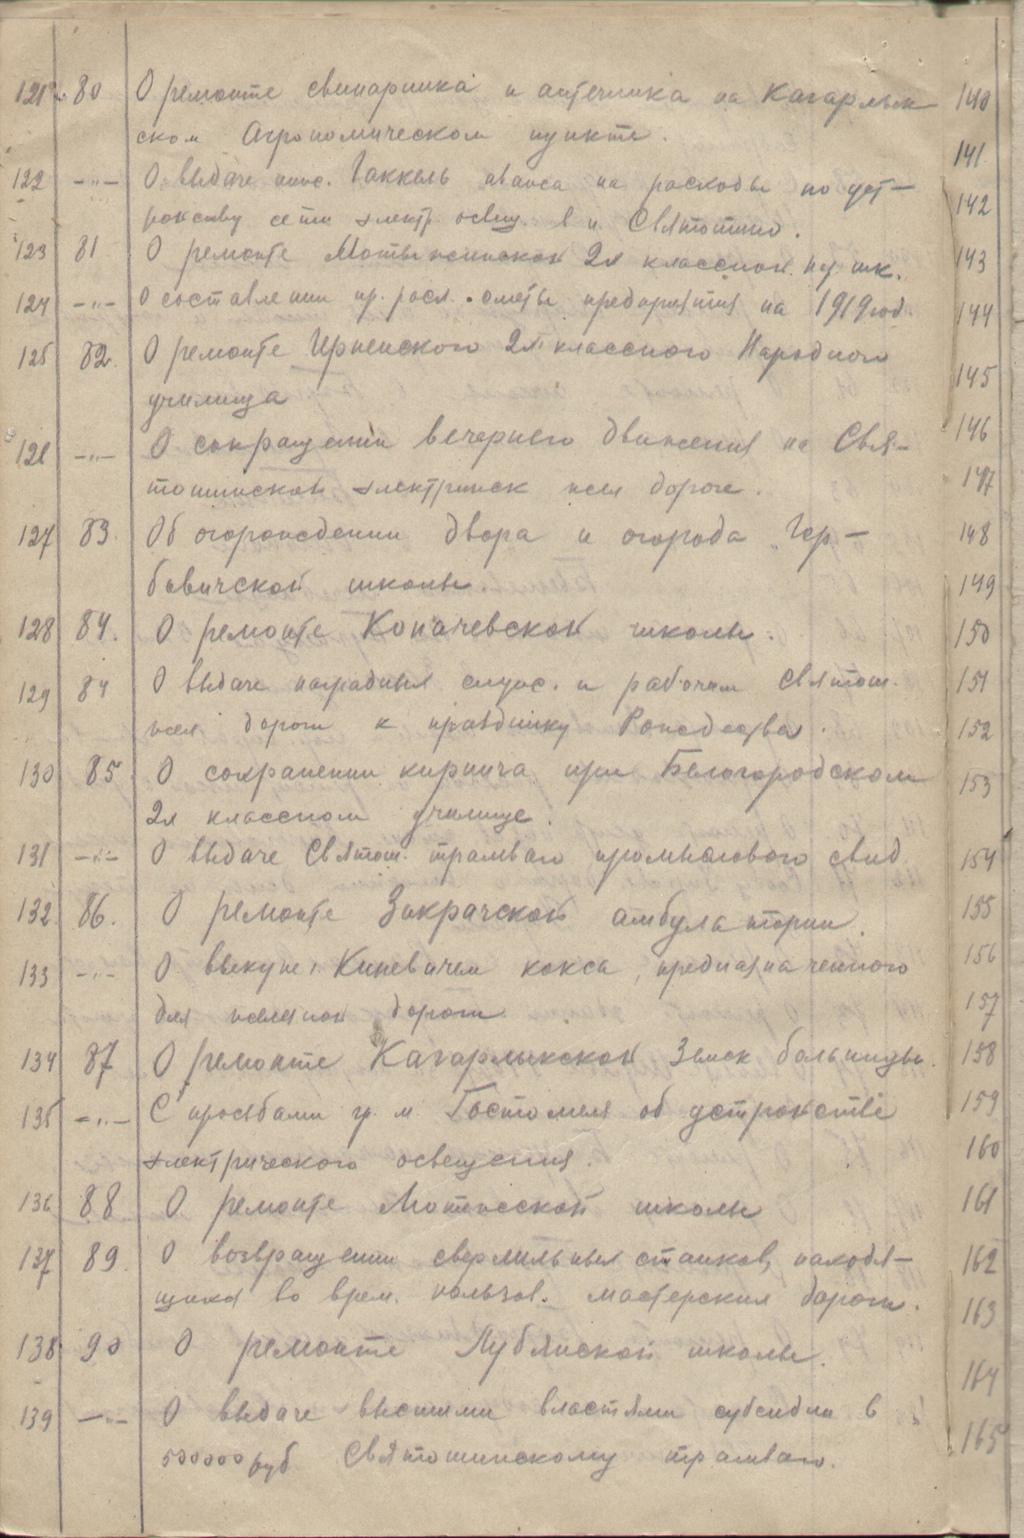 121 80 О ремонте свинарника и ледника на Кагарлык-
ском Агрономическом пункте.
122 -"- О выдаче инж. Гаккель аванса на расходы по уст-
ройству сети электр. освещ. в и Святошино.
123 81 О ремонте Мотыжинской 2х классной шк.
124 -"- О составлении пр. расх. сметы предприятия на 1919 год.
125 82. О ремонте 2х классного Народного
училища
126 -"- О сокращении вечернего движения на Свя-
тошинской электрическ жел дороге.
127 83. Об огорождении двора и огорода Гор-
бовичской школы.
128 84. О ремонте Копачевской школы.
129 84 О выдаче наградных служ. и рабочим Святош.
жел дороги к празднику Рождества.
130 85 О сохранении кирпича при Белогородском
2х классном училище.
131 -"- О выдаче Святош. трамваю промыслового свид.
132. 86. О ремонте Закрачской амбулатории.
133 -"- О выкупе Киневичем кокса, предназначенного
для железной дороги
134 87 О ремонте Кагарлыкской Земск больницы.
135 -"- С просьбами гр. м. Гостомеля об устройстве
электрического освещения.
136 88 О ремонте Мотыжской школы
137 89. О возвращении сверлильных станков, находя-
щихся во врем. пользов. мастерских дороги.
138 90 О ремонте Лубянской школы.
139 -"- О выдаче высшими властями субсидии в
500000 руб Святошинскому трамваю.
140
141
142
143
144
145
146
147
148
149
150
151
152
153
154
155
156
157
158
159
160
161
162
163
164
165